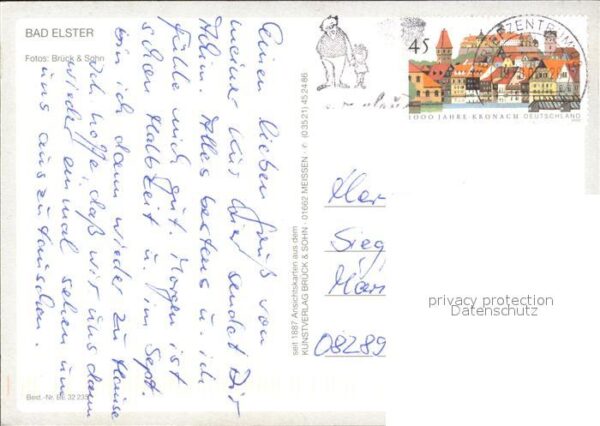 BAD ELSTER
Fotos: Brück & Sohn
Einen lieben Gruß von
meiner Kur hier sendet Dir
Alles bestens u. ich
fühle mich gut. Morgen ist
schon Halbzeit u. im Sept.
bin ich dann wieder zu Hause
Ich hoffe, daß wir uns dann
wieder einmal sehen um
uns auszutauschen.
Best.-Nr. BE 32 235
seit 1887 Ansichtskarten aus dem
KUNSTVERLAG BRÜCK & SOHN · 01662 MEISSEN · ✆ (0 35 21) 45 24 86
45
1000 JAHRE KRONACH DEUTSCHLAND
Sieg
08289
privacy protection
Datenschutz